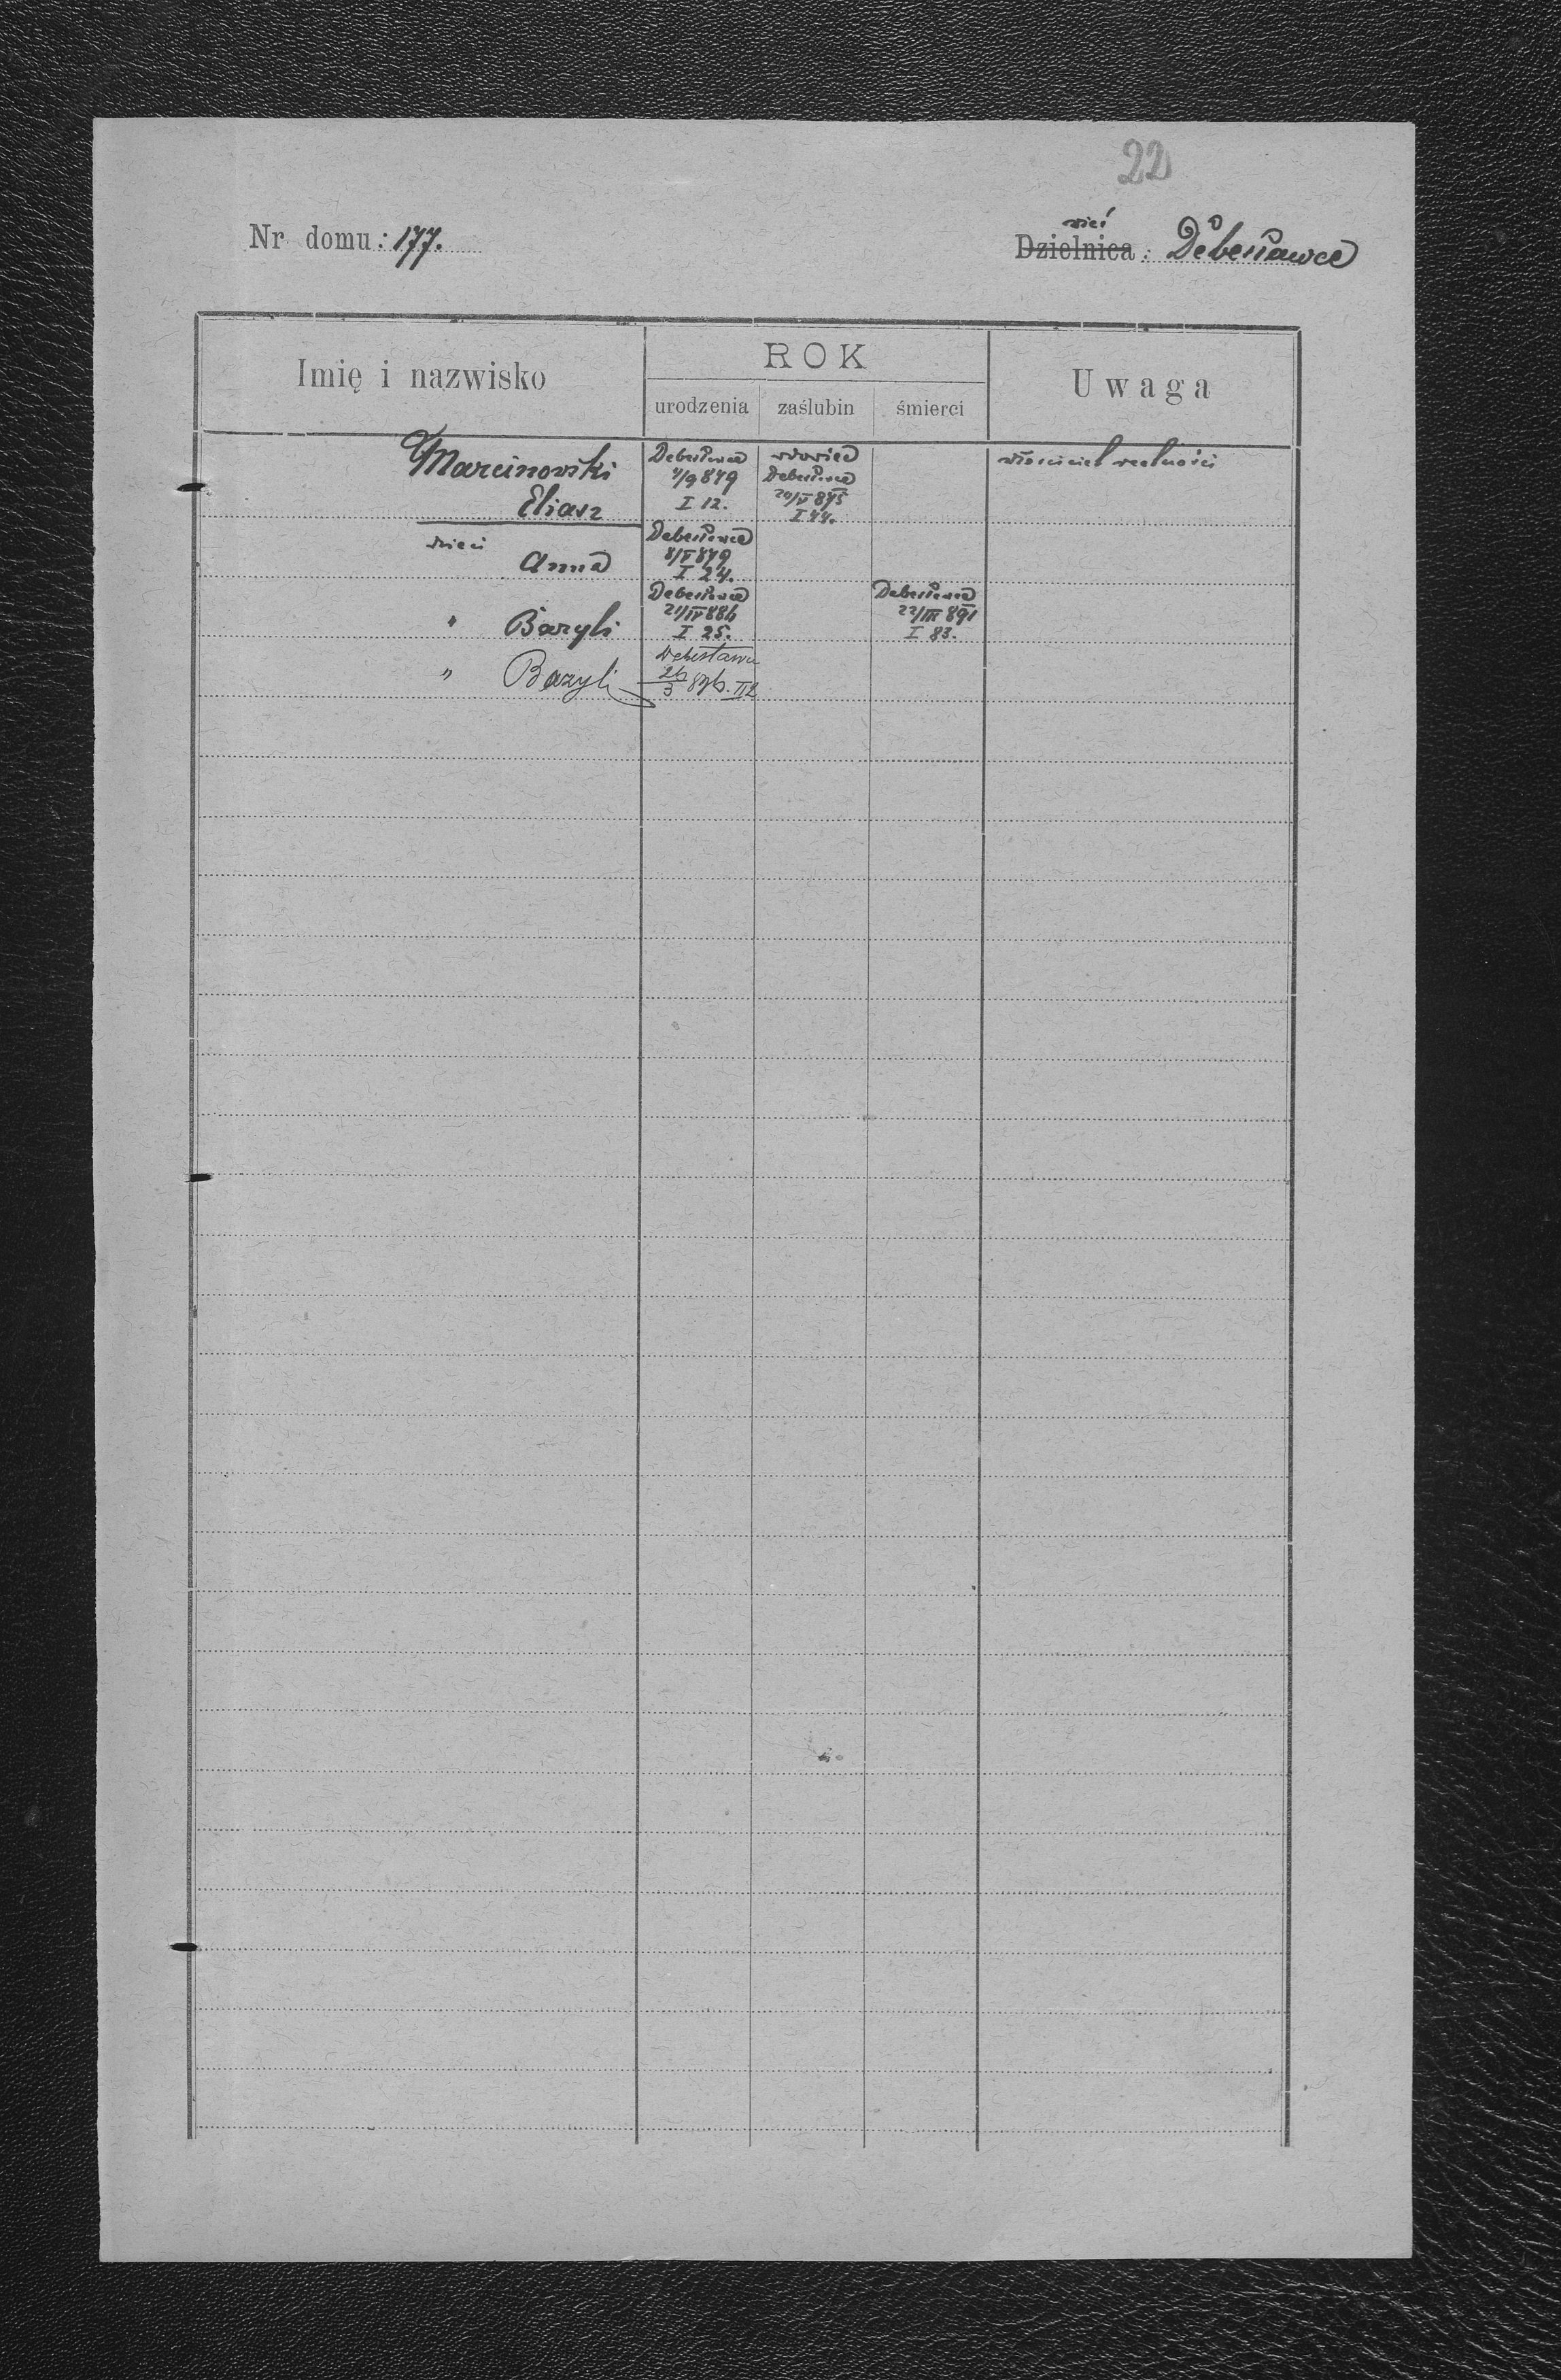 22
Nr domu: 177.
wieś
Dzielnica: Debesławce
Imię i nazwisko
ROK
urodzenia
zaślubin
śmierci
Uwaga
Marcinowski
Eliasz
Debesławce
I 12.
wdowiec
Debesławce
20/V 875
I 44.
właściciel realności
dzieci Anna
Debesławce
8/V 879
I 24.
" Bazyli
Debesławce
21/IV 886
I 25.
Debesławce
22/III 891
I 83.
" Bazyli
Debesławce
26/3 876. II